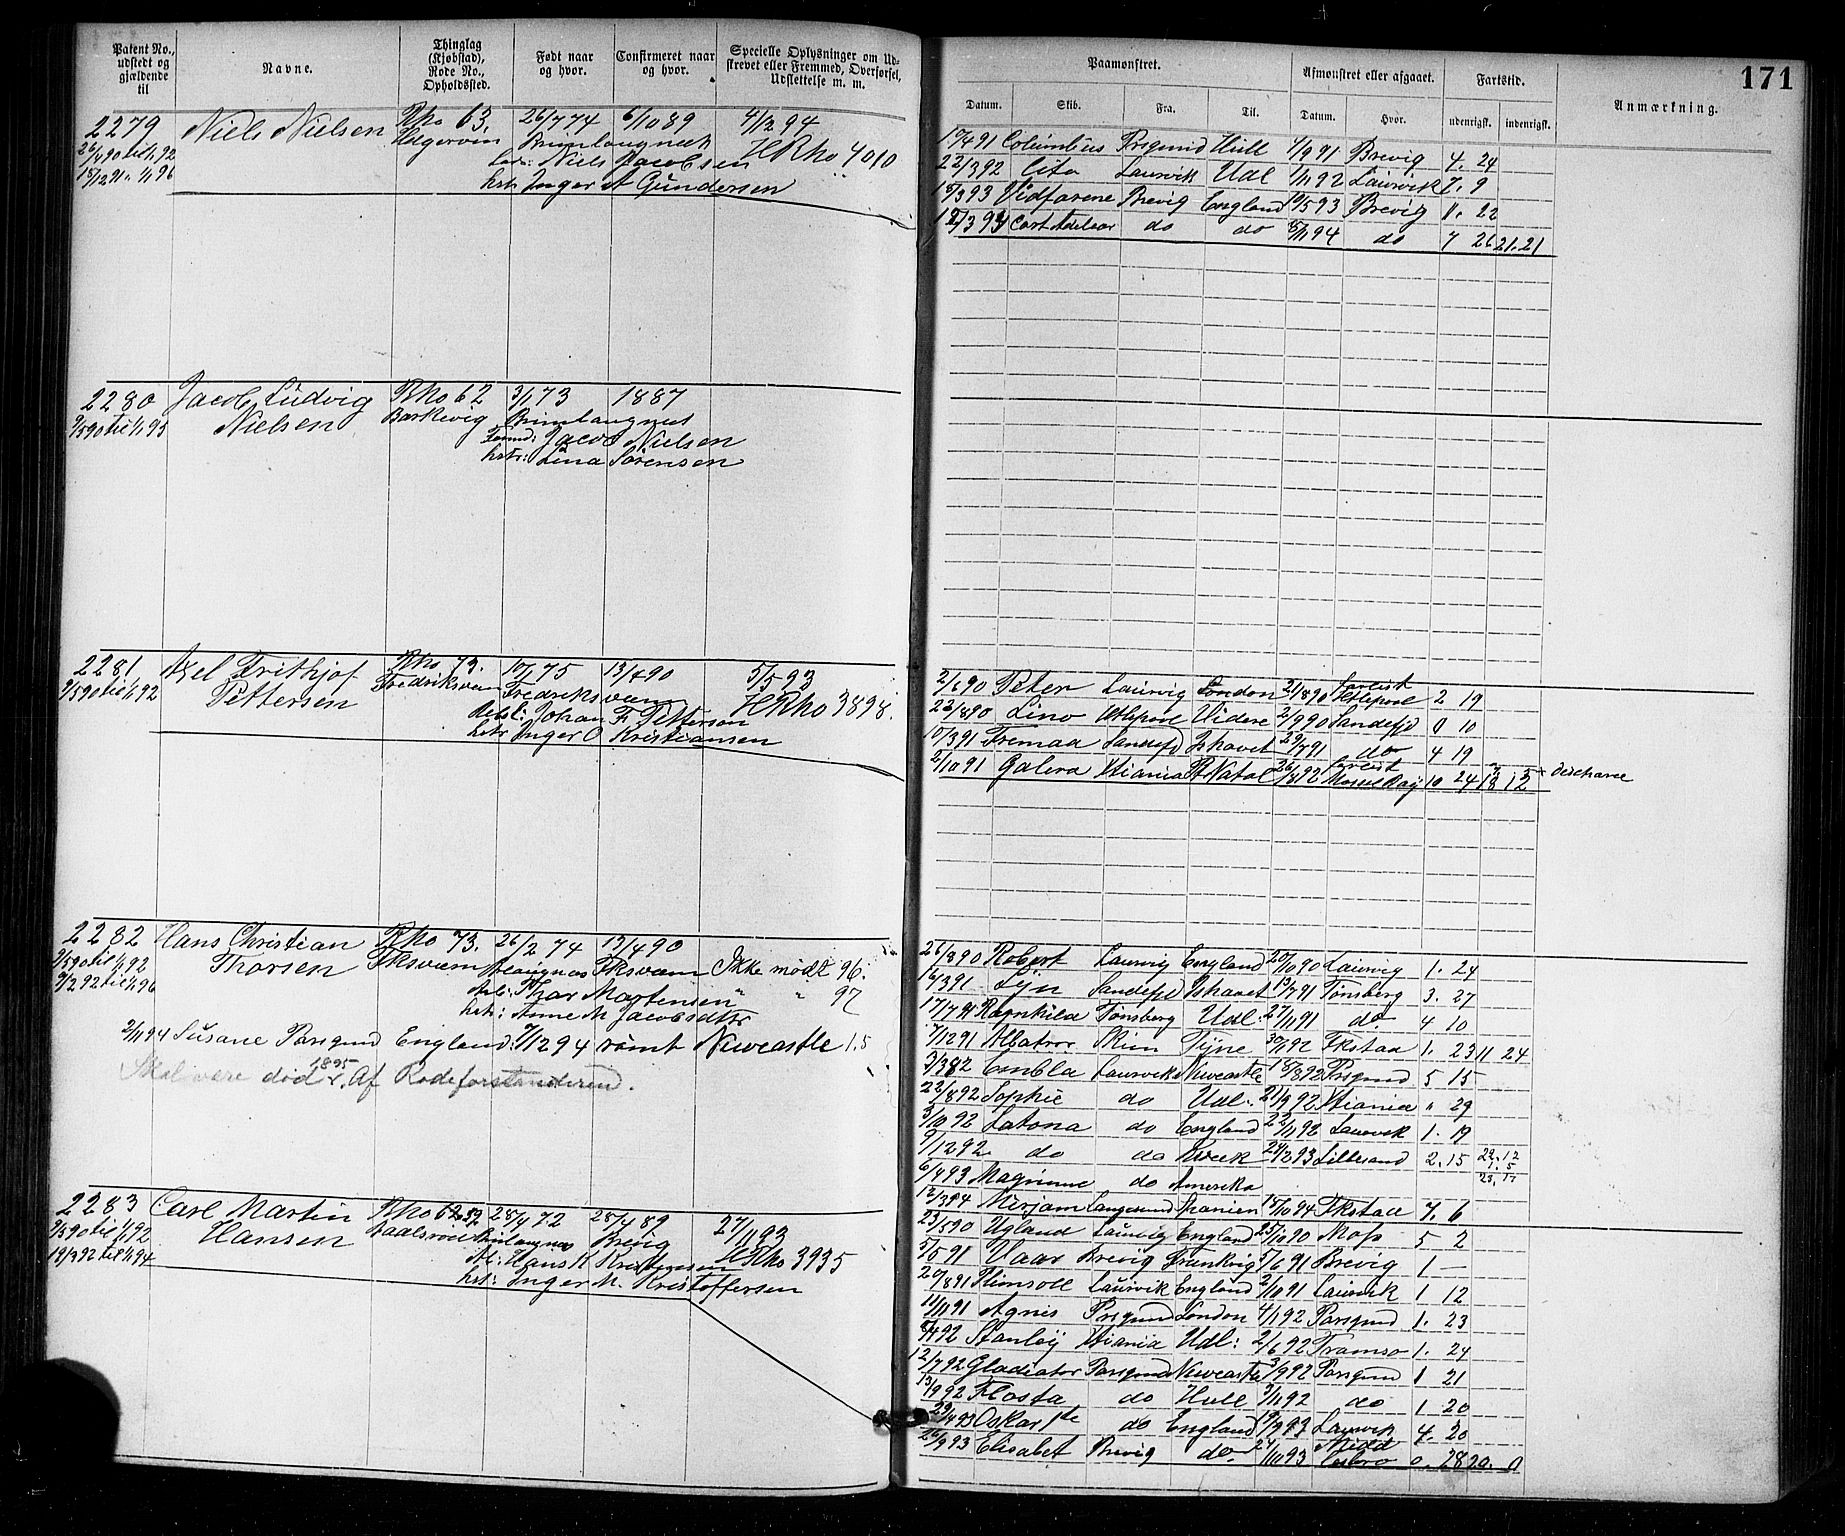 171
Patent No., udstedt og gjældende til
Navne.
Thinglag (Kjøbstad), Rode No., Opholdssted.
Født naar og hvor.
Confirmeret naar og hvor.
Specielle Oplysninger om Udskrevet eller Fremmed, Overførsel, Udslettelse m. m.
Paamønstret.
Afmønstret eller afgaaet.
Fartstid.
Anmærkning.
Datum. Skib. Fra. Til. Datum. Hvor. udenrigst. indenrigst.
2279 Niels Nielsen Rho 63. 26/7 74 6/10 89 4/12 94
26/4 90 til 1/1 92 Helgeroen Brunlangnæs HRho 4010
15/12 91 " 1/1 96 Niels Jacobsen
hstr: Inger A Gundersen
17/4 91 Columbus Prsgrund Hull 4/9 91 Brevig 4. 24
22/3 92 Cito Laurvik Udl 1/11 92 Laurvik 7. 9
15/3 93 Vidfarene Brevig England 10/5 93 Brevig 1. 22
Cort Adelaar do do 5/11 94 do 7 26 21. 21
2280 Jacob Ludvig Rho 62 3/1 73 1887
9/5 90 til 1/1 95 Nielsen Barkevig Brunlangnæs
Jacob Nielsen
hstr: Lina Sørensen
2281 Axel Frithjof Rho 73. 10/1 75 13/4 90 5/5 93
9/5 90 til 1/1 92 Pettersen Fredriksværn Fredriksværn HRho 3898.
Johan F. Pettersen
hstr Inger O Kristiansen
2/6 90 Peter Laurvig London 21/8 90 Htlepool 2 19
23/8 90 Lino Htlepool Videre 2/9 90 Sandefjd 0 10
10/3 91 Fremad Sandefjd Ishavet 29/7 91 do 4 19
2/10 91 Galera Xtiania Pt Natal 26/8 92 Mossel Bay 10 24
2282 Hans Christian Rho 73. 26/2 74 13/4 90
9/5 90 til 1/1 92 Thorsen Fksværn Fksværn Ikke mødt 96.
9/2 92 til 1/1 96 Thor Martensen " " 97
hstr: Anne M Jacobsdtr
2/11 94 Susane Porsgrund England. 7/12 94 rømt Newcastle 1. 5
Skal være død 1895. Af Rodeforstanderen.
26/8 90 Robert Laurvig England 20/10 90 Laurvig 1. 24
14/3 91 Lyn Sandefjd Ishavet 11/7 91 Tønsberg 3. 27
17/7 91 Ragnhild Tønsberg Udl: 27/11 91 do. 4 10
7/12 91 Albatros Skien Tyne 30/1 92 Fkstad 1. 23 11 24
3/3 82 Embla Laurvik Newcastle 18/8 92 Prsgrund 5 15
22/8 92 Sophie do Udl: 21/9 92 Xtiania " 29
3/10 92 Latona do England 22/11 92 Laurvik 1. 19
9/12 92 do do 24/2 93 Lillesand 2. 15 22. 12
6/4 93 Magnume do Amerika 23. 17
12/3 94 Mirjam Langesund Spanien 18/10 94 Fkstad 7. 6
2283 Carl Martin Rho 62 28/4 72 28/4 89 27/11 93
9/5 90 til 1/1 92 Hansen Brunlangnæs Brevig HRho 3935
19/3 92 til 1/1 94 Hans K Kristensen
hstr: Inger M. Kristoffersen
23/5 90 Ugland Laurvig England 25/10 90 Moss 5 2
5/5 91 Haar Brevig Frankrig 5/6 91 Brevig 1 —
20/8 91 Plimsoll Laurvik England 2/10 91 Laurvik 1 12
11/11 91 Agnes Prsgrund London 4/1 92 Porsgrund 1. 23
8/4 92 Stanley Xtiania Udl: 2/6 92 Tromsø 1. 24
12/7 92 Gladiator Porsgrund Newcastle 3/9 92 Porsgrund 1 21
13/9 92 Flosta do Hull 3/11 92 do 1 20
29/4 93 Oskar 1ste do England 19/9 93 Laurvik 4. 20
26/9 93 Elisabet Brevig do. 24/11 93 Middlesbro 0. 28 20. 0